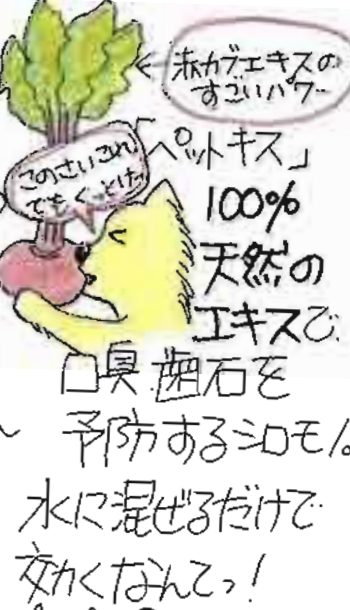 赤カブエキスの
すごいパワー
このさいこれ
でもくっとけ!!
「ペットキス」
100%
天然の
エキスで
口臭歯石を
予防するシロモノ。
水に混ぜるだけで
効くなんてっ!